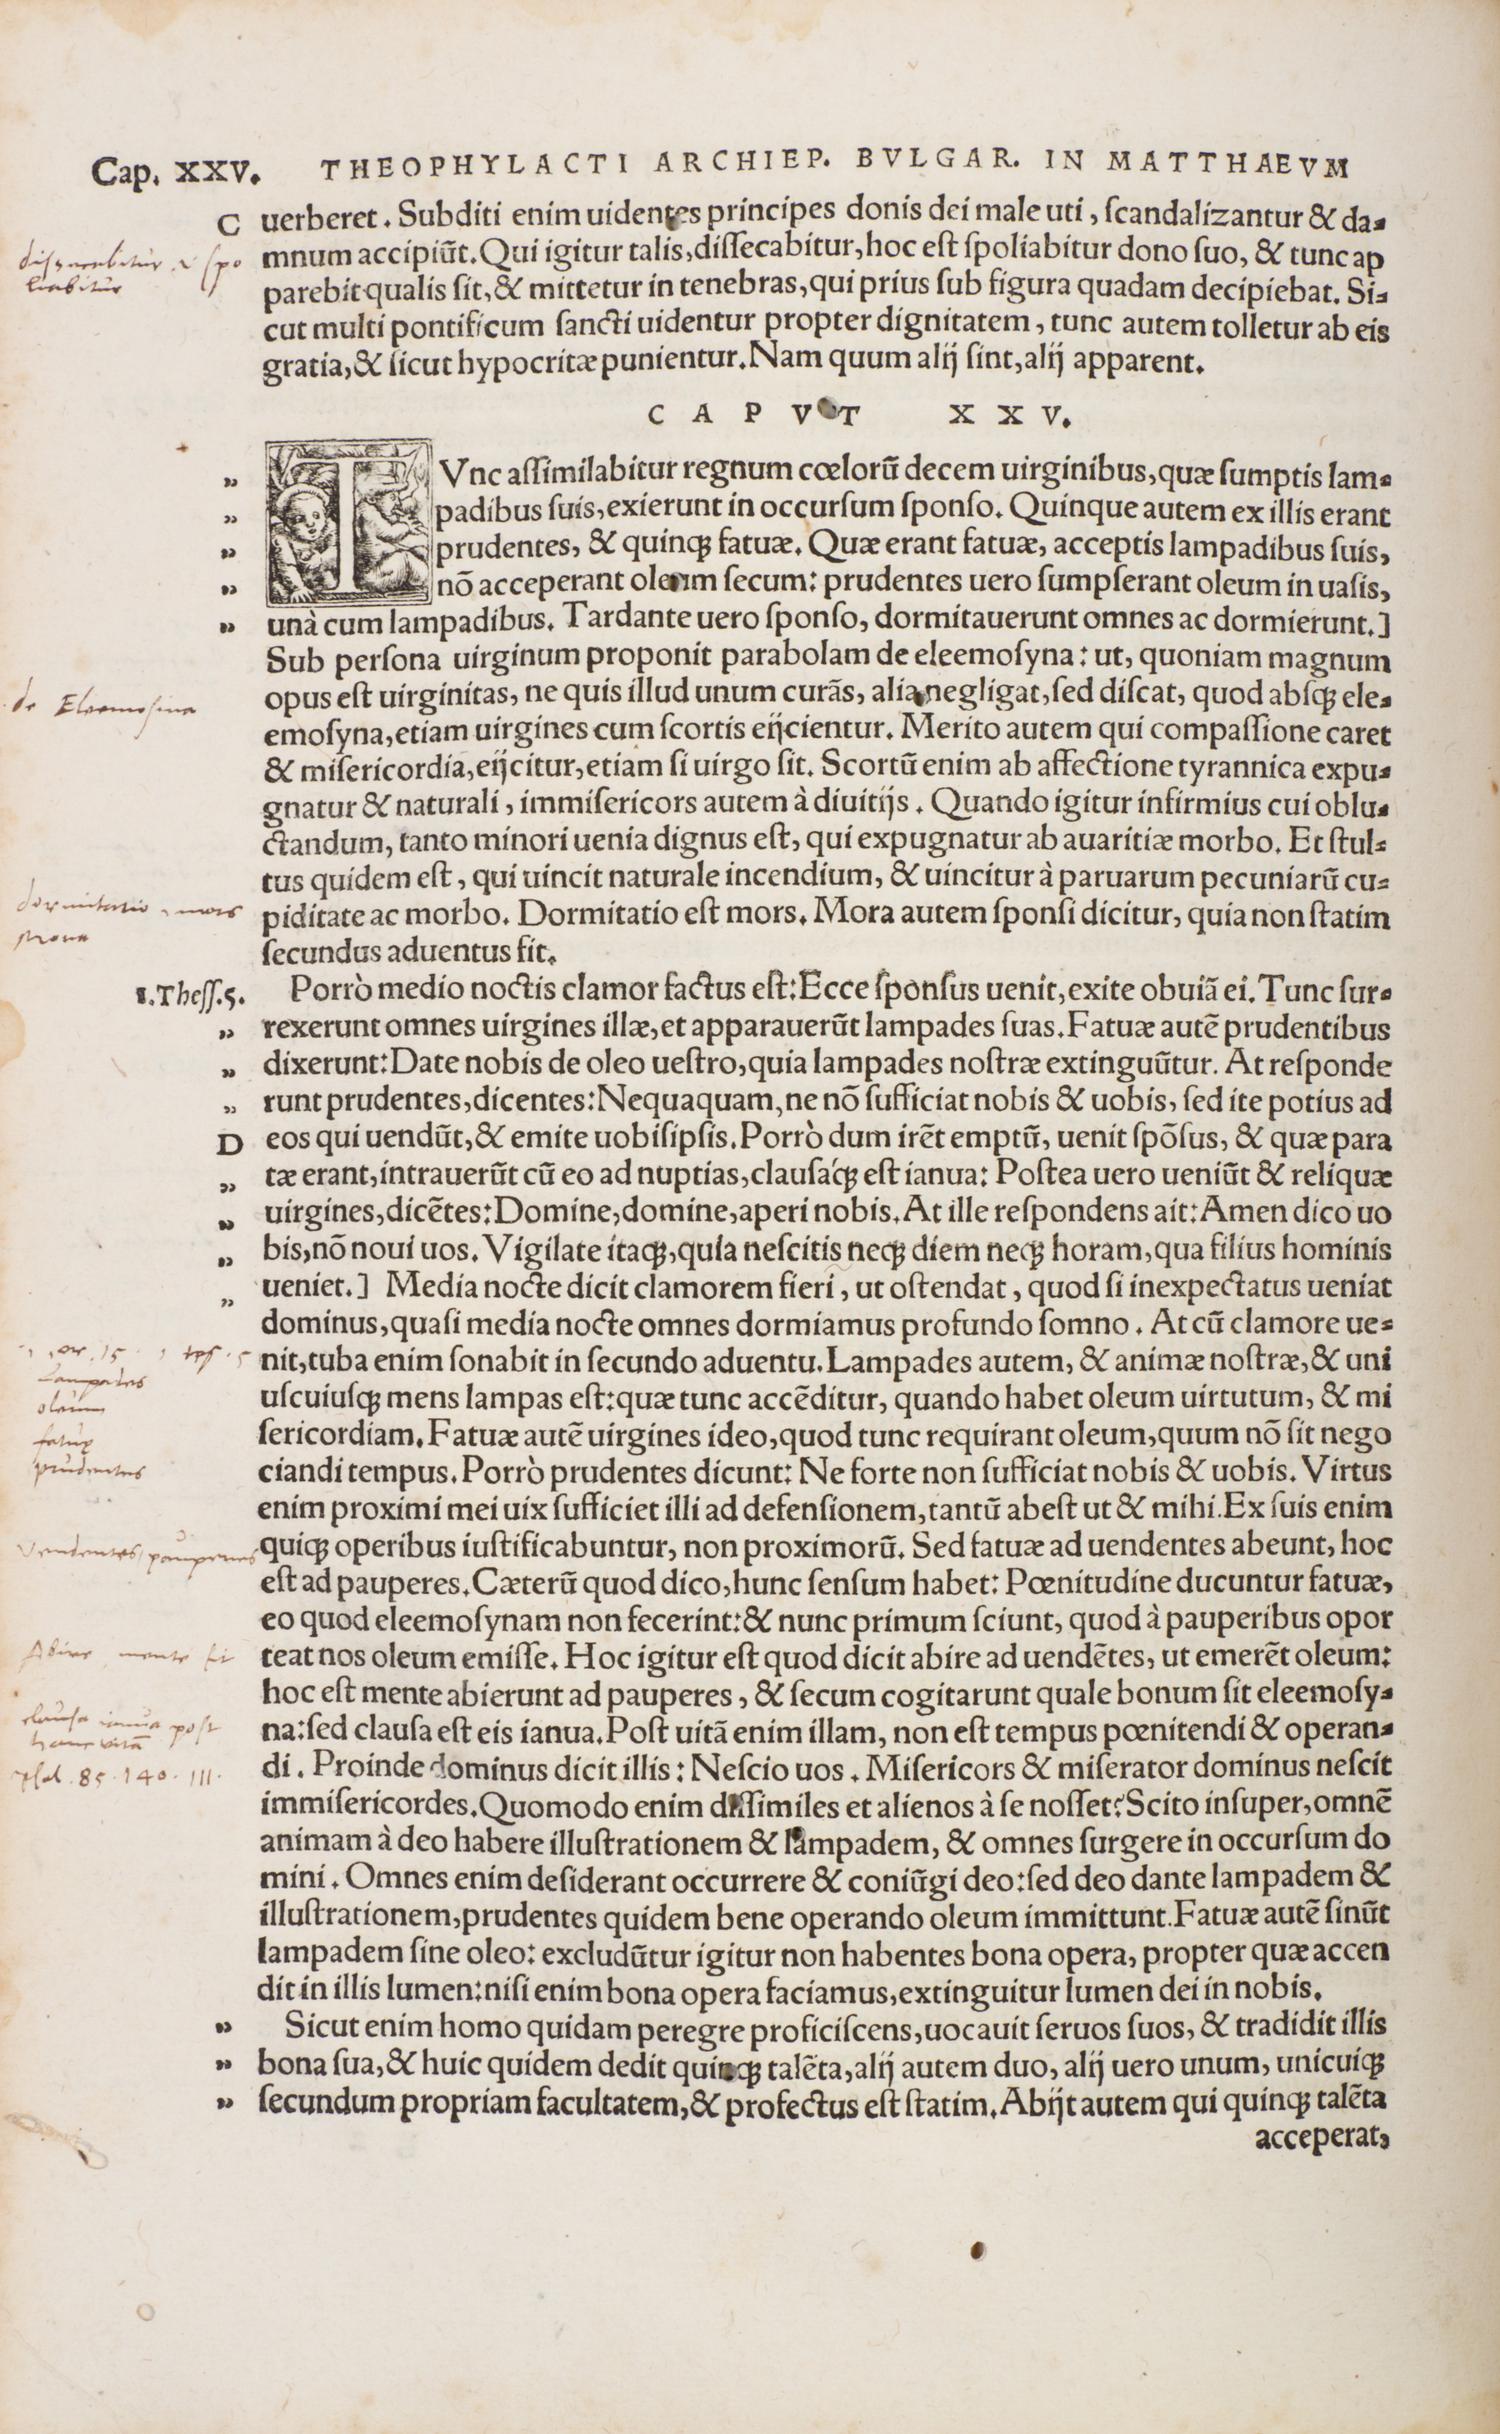 Cap. XXV. THEOPHYLACTI ARCHIEP. BVLGAR. IN MATTHAEVM
C uerberet. Subditi enim uidentes principes donis dei male uti, scandalizantur & da-
mnum accipiūt. Qui igitur talis, dissecabitur, hoc est spoliabitur dono suo, & tunc ap
parebit qualis sit, & mittetur in tenebras, qui prius sub figura quadam decipiebat. Si-
cut multi pontificum sancti uidentur propter dignitatem, tunc autem tolletur ab eis
gratia, & sicut hypocritæ punientur. Nam quum alij sint, alij apparent.
CAPVT XXV.
„ TVnc assimilabitur regnum cœlorū decem uirginibus, quæ sumptis lam-
„ padibus suis, exierunt in occursum sponso. Quinque autem ex illis erant
„ prudentes, & quinqꝫ fatuæ. Quæ erant fatuæ, acceptis lampadibus suis,
„ nō acceperant oleum secum: prudentes uero sumpserant oleum in uasis,
„ unà cum lampadibus. Tardante uero sponso, dormitauerunt omnes ac dormierunt.]
Sub persona uirginum proponit parabolam de eleemosyna: ut, quoniam magnum
de Eleemosina
opus est uirginitas, ne quis illud unum curās, alia negligat, sed discat, quod absqꝫ ele-
emosyna, etiam uirgines cum scortis eijcientur. Merito autem qui compassione caret
& misericordia, eijcitur, etiam si uirgo sit. Scortū enim ab affectione tyrannica expu-
gnatur & naturali, immisericors autem à diuitijs. Quando igitur infirmius cui oblu-
ctandum, tanto minori uenia dignus est, qui expugnatur ab auaritiæ morbo. Et stul-
tus quidem est, qui uincit naturale incendium, & uincitur à paruarum pecuniarū cu-
dormitatio mors
piditate ac morbo. Dormitatio est mors. Mora autem sponsi dicitur, quia non statim
mora
secundus aduentus fit.
1. Thess. 5. Porrò medio noctis clamor factus est: Ecce sponsus uenit, exite obuiā ei. Tunc sur-
„ rexerunt omnes uirgines illæ, et apparauerūt lampades suas. Fatuæ autē prudentibus
„ dixerunt: Date nobis de oleo uestro, quia lampades nostræ extinguūtur. At responde
„ runt prudentes, dicentes: Nequaquam, ne nō sufficiat nobis & uobis, sed ite potius ad
D eos qui uendūt, & emite uobisipsis. Porrò dum irēt emptū, uenit spōsus, & quæ para
„ tæ erant, intrauerūt cū eo ad nuptias, clausaqꝫ est ianua: Postea uero ueniūt & reliquæ
„ uirgines, dicētes: Domine, domine, aperi nobis. At ille respondens ait: Amen dico uo
„ bis, nō noui uos. Vigilate itaqꝫ, quia nescitis neqꝫ diem neqꝫ horam, qua filius hominis
„ ueniet.] Media nocte dicit clamorem fieri, ut ostendat, quod si inexpectatus ueniat
dominus, quasi media nocte omnes dormiamus profundo somno. At cū clamore ue-
nit, tuba enim sonabit in secundo aduentu. Lampades autem, & animæ nostræ, & uni
Lampades
uscuiusqꝫ mens lampas est: quæ tunc accēditur, quando habet oleum uirtutum, & mi
oleum
sericordiam. Fatuæ autē uirgines ideo, quod tunc requirant oleum, quum nō sit nego
fatuę
prudentes
ciandi tempus. Porrò prudentes dicunt: Ne forte non sufficiat nobis & uobis. Virtus
enim proximi mei uix sufficiet illi ad defensionem, tantū abest ut & mihi. Ex suis enim
Vendentes pauperes
quiqꝫ operibus iustificabuntur, non proximorū. Sed fatuæ ad uendentes abeunt, hoc
est ad pauperes. Cæterū quod dico, hunc sensum habet: Pœnitudine ducuntur fatuæ,
eo quod eleemosynam non fecerint: & nunc primum sciunt, quod à pauperibus opor
Abire mente fit
teat nos oleum emisse. Hoc igitur est quod dicit abire ad uendētes, ut emerēt oleum:
hoc est mente abierunt ad pauperes, & secum cogitarunt quale bonum sit eleemosy-
clausa ianua post
hanc vitā
na: sed clausa est eis ianua. Post uitā enim illam, non est tempus pœnitendi & operan-
psal. 85. 140. 111.
di. Proinde dominus dicit illis: Nescio uos. Misericors & miserator dominus nescit
immisericordes. Quomodo enim dissimiles et alienos à se nosset? Scito insuper, omnē
animam à deo habere illustrationem & lampadem, & omnes surgere in occursum do
mini. Omnes enim desiderant occurrere & coniūgi deo: sed deo dante lampadem &
illustrationem, prudentes quidem bene operando oleum immittunt. Fatuæ autē sinūt
lampadem sine oleo: excludūtur igitur non habentes bona opera, propter quæ accen
dit in illis lumen: nisi enim bona opera faciamus, extinguitur lumen dei in nobis.
„ Sicut enim homo quidam peregre proficiscens, uocauit seruos suos, & tradidit illis
„ bona sua, & huic quidem dedit quinqꝫ talēta, alij autem duo, alij uero unum, unicuiqꝫ
„ secundum propriam facultatem, & profectus est statim. Abijt autem qui quinqꝫ talēta
acceperat,